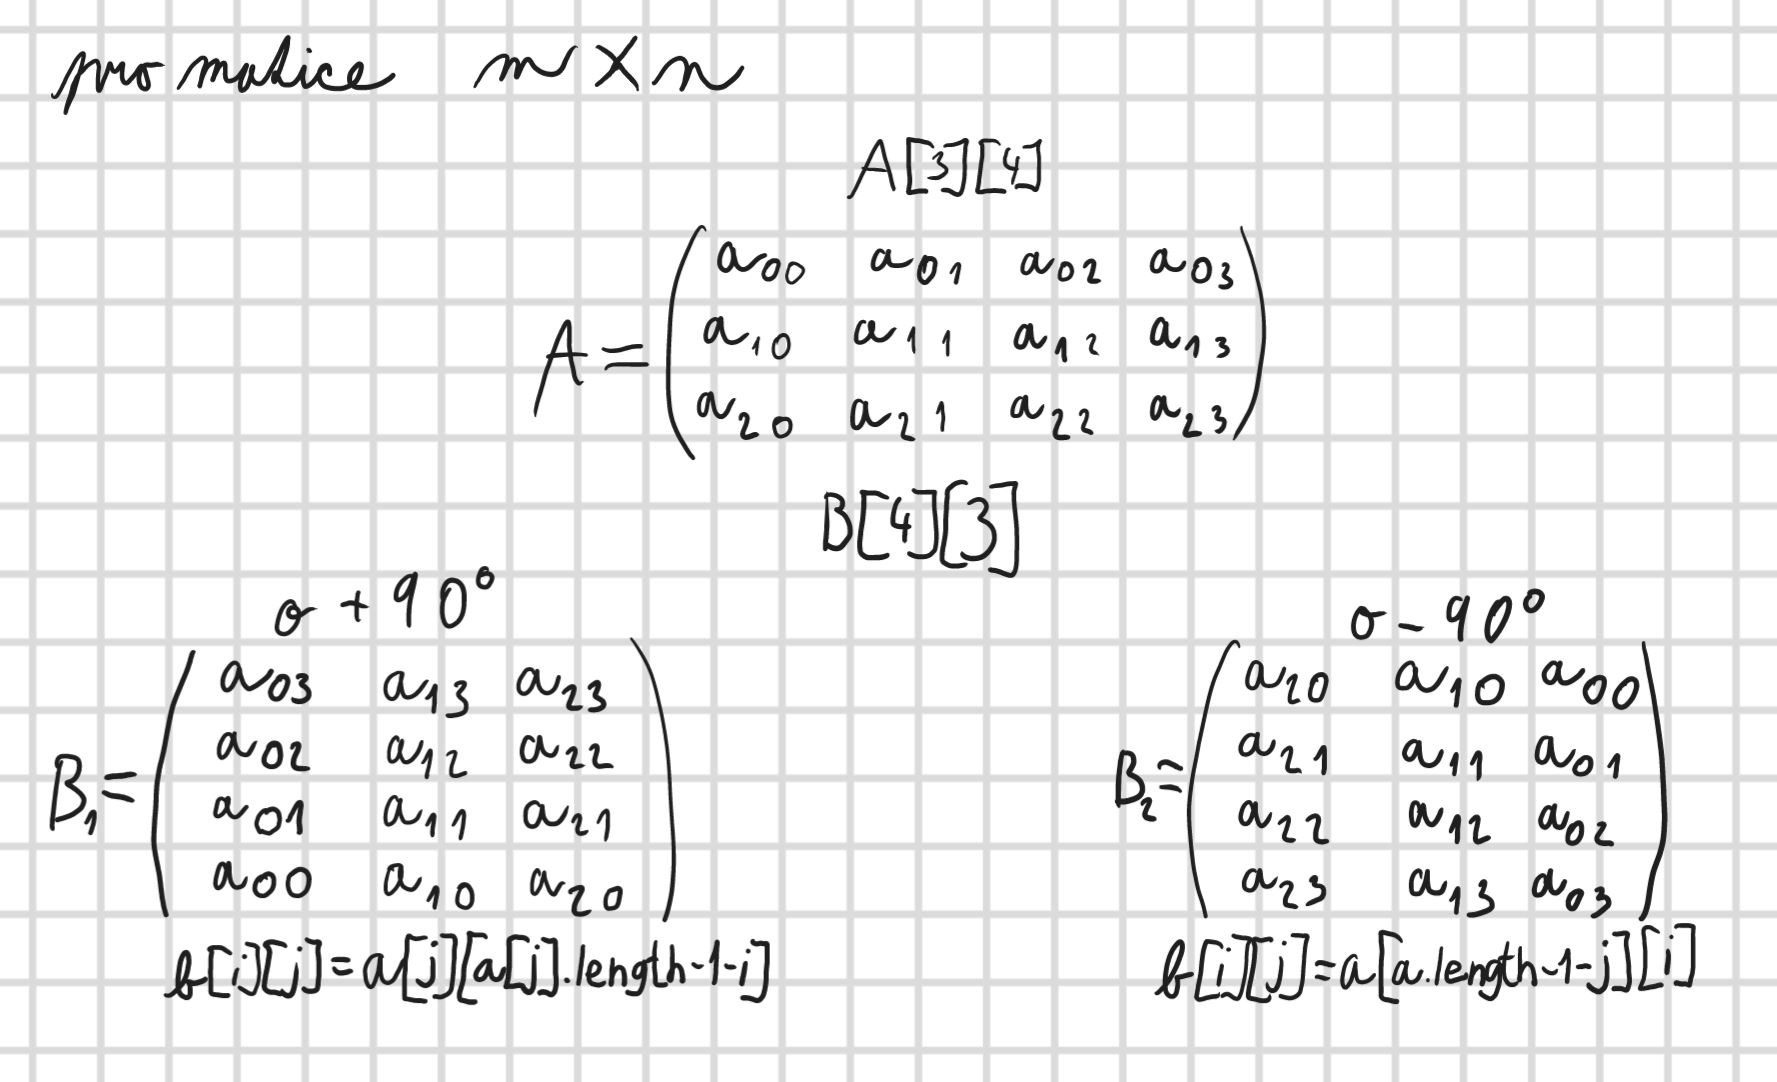 pro matice m X n
A[3][4]
A = ( a00 a01 a02 a03
a10 a11 a12 a13
a20 a21 a22 a23 )
B[4][3]
o + 90°
B1 = ( a03 a13 a23
a02 a12 a22
a01 a11 a21
a00 a10 a20 )
b[i][j] = a[j][a[j].length-1-i]
o - 90°
B2 = ( a20 a10 a00
a21 a11 a01
a22 a12 a02
a23 a13 a03 )
b[i][j] = a[a.length-1-j][i]